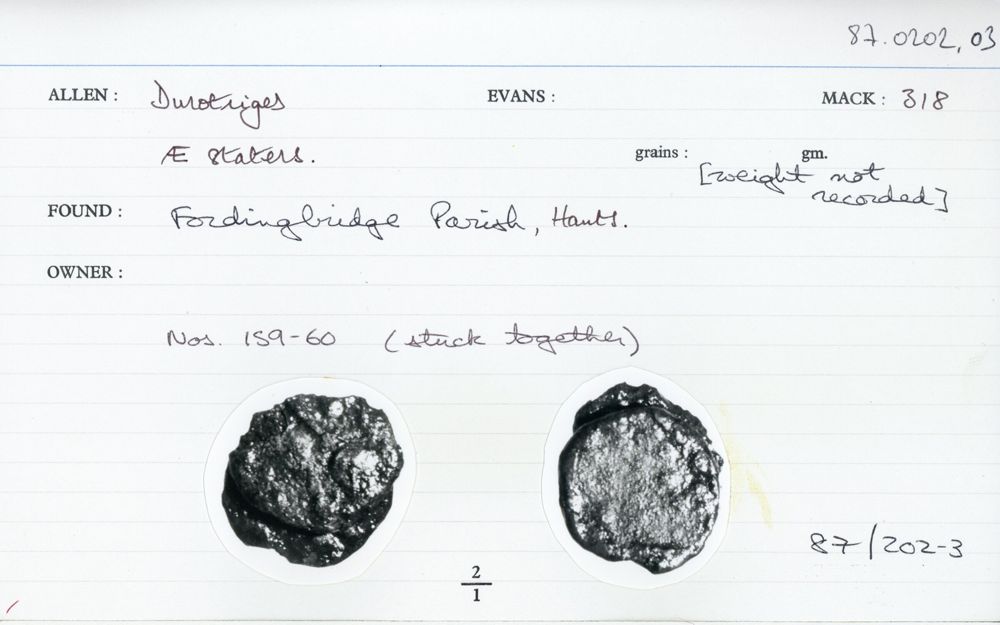 87.0202, 03
ALLEN : Durotriges EVANS : MACK : 318
Æ staters. grains : gm.
[weight not
recorded]
FOUND : Fordingbridge Parish, Hants.
OWNER :
Nos. 159-60 (stuck together)
87/202-3
2
1